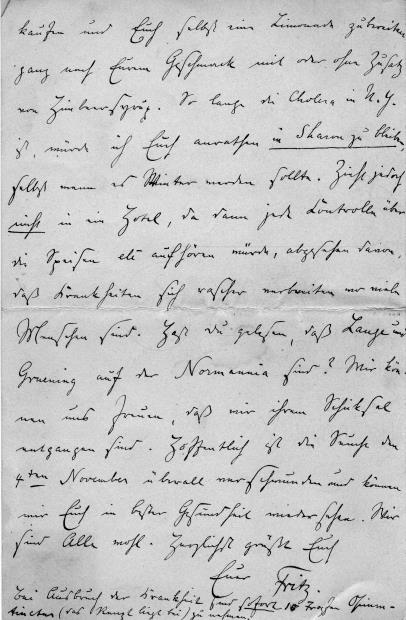 kaufen und Euch selbst eine Limonade zubereiten
ganz nach Eurem Geschmack mit oder ohne Zusatz
von Himbeersyrup. So lange die Cholera in N.Y.
ist, würde ich Euch anrathen in Sharon zu bleiben
selbst wenn es Winter werden sollte. Zieht jedoch
nicht in ein Hotel, da dann jede Controlle über
die Speisen etc aufhören würde, abgesehen davon,
daß Krankheiten sich rascher verbreiten wo viele
Menschen sind. Hast du gelesen, daß Lange und
Gruening auf der Normannia sind? Wir kön-
nen uns freuen, daß wir ihrem Schicksal
entgangen sind. Hoffentlich ist die Seuche den
4ten November überall verschwunden und können
wir Euch in bester Gesundheit wiedersehen. Wir
sind Alle wohl. Herzlichst grüßt Euch
Euer Fritz.
Bei Ausbruch der Krankheit sind sofort 15 Tropfen Opium-
tinctur (das Rezept liegt bei) zu nehmen.